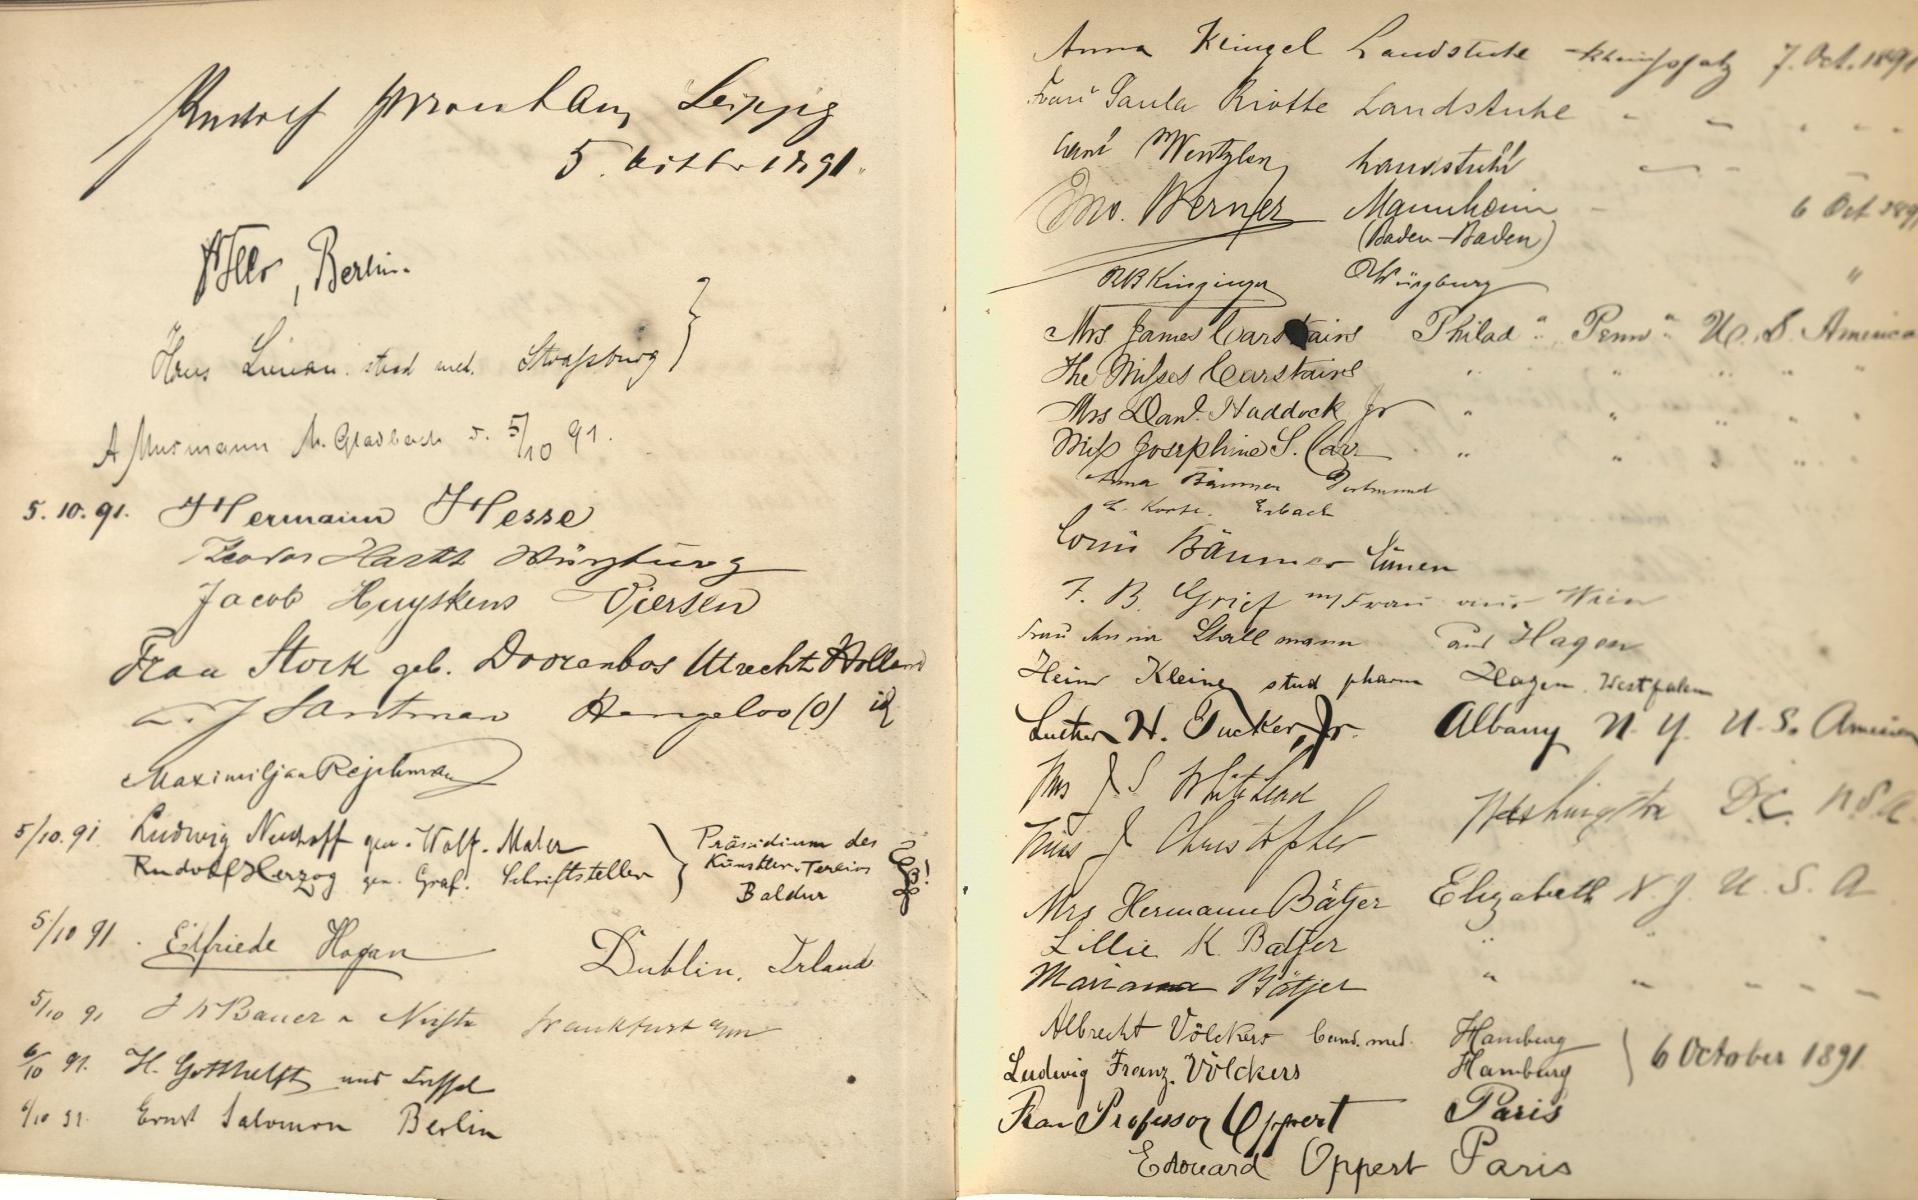 Rudolf Leipzig
5. 1891.
Berlin.
Hans stud med. Strassburg
A Murmann M. Gladbach d. 5/10 91.
5. 10. 91. Hermann Hesse
Theodor Würzburg
Jacob Huyskens Viersen
Frau Stork geb. Doorenbos Utrecht Holland
Santman Hengeloo (O)
Maximiljan Rejchman
5/10. 91 Ludwig Neuhoff gen. Wolf. Maler
Rudolf Herzog gen. Graf. Schriftsteller
Präsidium des
Künstler-Vereins
Baldur
5/10 91. Elfriede Hogan Dublin, Irland
5/10 91 Bauer Frankfurt a/m
6/10 91. H. Gotthelft und
6/10 91. Ernst Salomon Berlin
Anna Klingel Landstuhl Rheinpfalz 7. Oct. 1891
Frau Paula Riotte Landstuhl " " " " "
Wentzler Landstuhl " "
Jno. Werner Mannheim 6 Oct 1891
(Baden-Baden)
Würzburg "
Mrs James Carstairs Philad " Penn " U. S. America
The Misses Carstairs " " " " "
Mrs Danl. Haddock Jr " " " "
Miss Josephine S. Carr " " " " "
Anna Bäumer Dortmund
Korte. Erbach
Louis Bäumer Lünen
F. B. Grief m/Frau aus Wien
Frau Anna Stallmann aus Hagen
Heinr Kleine stud pharm Hagen. Westfalen
Luther H. Tucker, Jr. Albany N. Y. U. S. America
Mrs J S Whitehead
Washington D.C. U S A.
Miss J Christopher
Mrs Hermann Bätjer Elizabeth N. J. U. S. A
Lillie K. Batjer " " "
Mariana Bätjer " " " " "
Albrecht Völckers cand. med. Hamburg
6 October 1891
Ludwig Franz. Völckers Hamburg
Frau Professor Oppert Paris
Edouard Oppert Paris